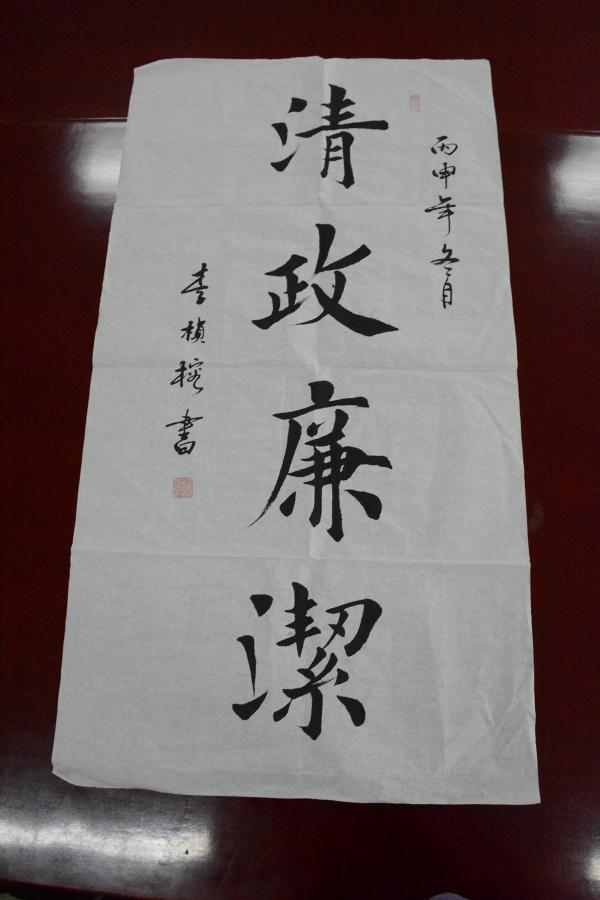 丙申年冬月
清政廉潔
李楨榕書